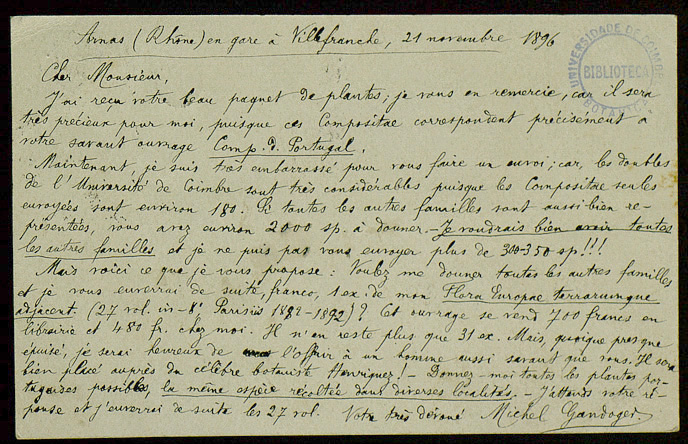 Arnas (Rhône) en gare à Villefranche, 21 novembre 1896
UNIVERSIDADE DE COIMBRA
BIBLIOTECA
BOTANICA
Cher Monsieur,
J'ai reçu votre beau paquet de plantes; je vous en remercie, car il sera
très précieux pour moi, puisque ces Compositae correspondent précisément à
votre savant ouvrage Comp. d. Portugal.
Maintenant, je suis très embarrassé pour vous faire un envoi; car, les doubles
de l'Université de Coimbre sont très considérables puisque les Compositae seules
envoyées sont environ 180. Si toutes les autres familles sont aussi bien re-
présentées, vous avez environ 2000 sp. à donner. - Je voudrais bien avoir toutes
les autres familles et je ne puis pas vous envoyer plus de 300-350 sp!!!
Mais voici ce que je vous propose: Voulez me donner toutes les autres familles
et je vous enverrai de suite, franco, 1 ex. de mon Flora Europae terrarumque
adjacent. (27 vol. in-8° Parisiis 1882-1892)? Cet ouvrage se vend 700 francs en
librairie et 480 fr. chez moi. Il n'en reste plus que 31 ex. Mais, quoique presque
épuisé, je serai heureux de l'offrir à un homme aussi savant que vous. Il sera
bien placé auprès du célèbre botaniste Henriques! - Donnez-moi toutes les plantes por-
tugaises possibles, la même espèce récoltée dans diverses localités. - J'attends votre ré-
ponse et j'enverrai de suite les 27 vol. Votre très dévoué Michel Gandoger